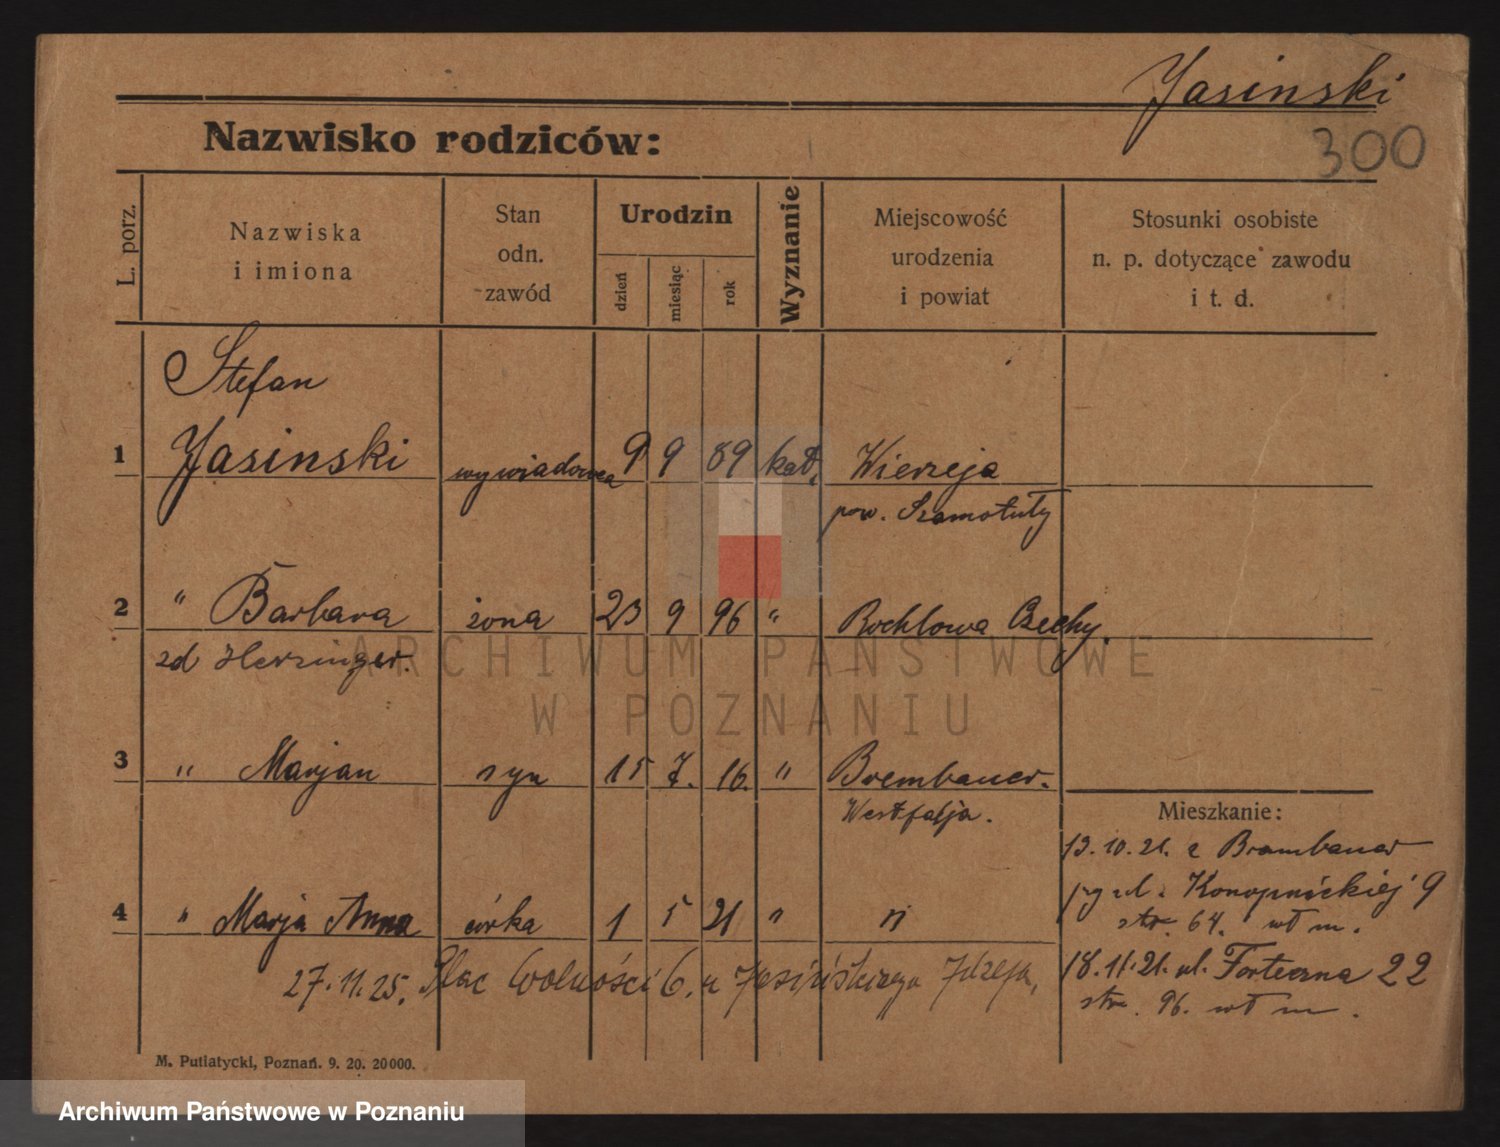 Jasinski
Nazwisko rodziców:
300
L. porz.
Nazwiska
i imiona
Stan
odn.
zawód
Urodzin
dzień
miesiąc
rok
Wyznanie
Miejscowość
urodzenia
i powiat
Stosunki osobiste
n. p. dotyczące zawodu
i t. d.
Stefan
1 Jasinski wywiadowca 9 9 89 kat. Wierzeja
pow. Szamotuły
2 " Barbara żona 23 9 96 " Rochlowa Czechy.
zd Herzinger.
3 " Marjan syn 15 7. 16. " Brembauer.
Westfalja.
Mieszkanie:
13.10.21. z Brambauer
ul. Konopnickiej 9
str. 64. wł m.
4 " Marja Anna córka 1 5 21 " "
18.11.21. ul. Forteczna 22
str. 96. wł m.
27.11.25. Plac Wolności 6. u Jasińskiego
M. Putiatycki, Poznań. 9. 20. 20000.
ARCHIWUM PAŃSTWOWE
W POZNANIU
Archiwum Państwowe w Poznaniu